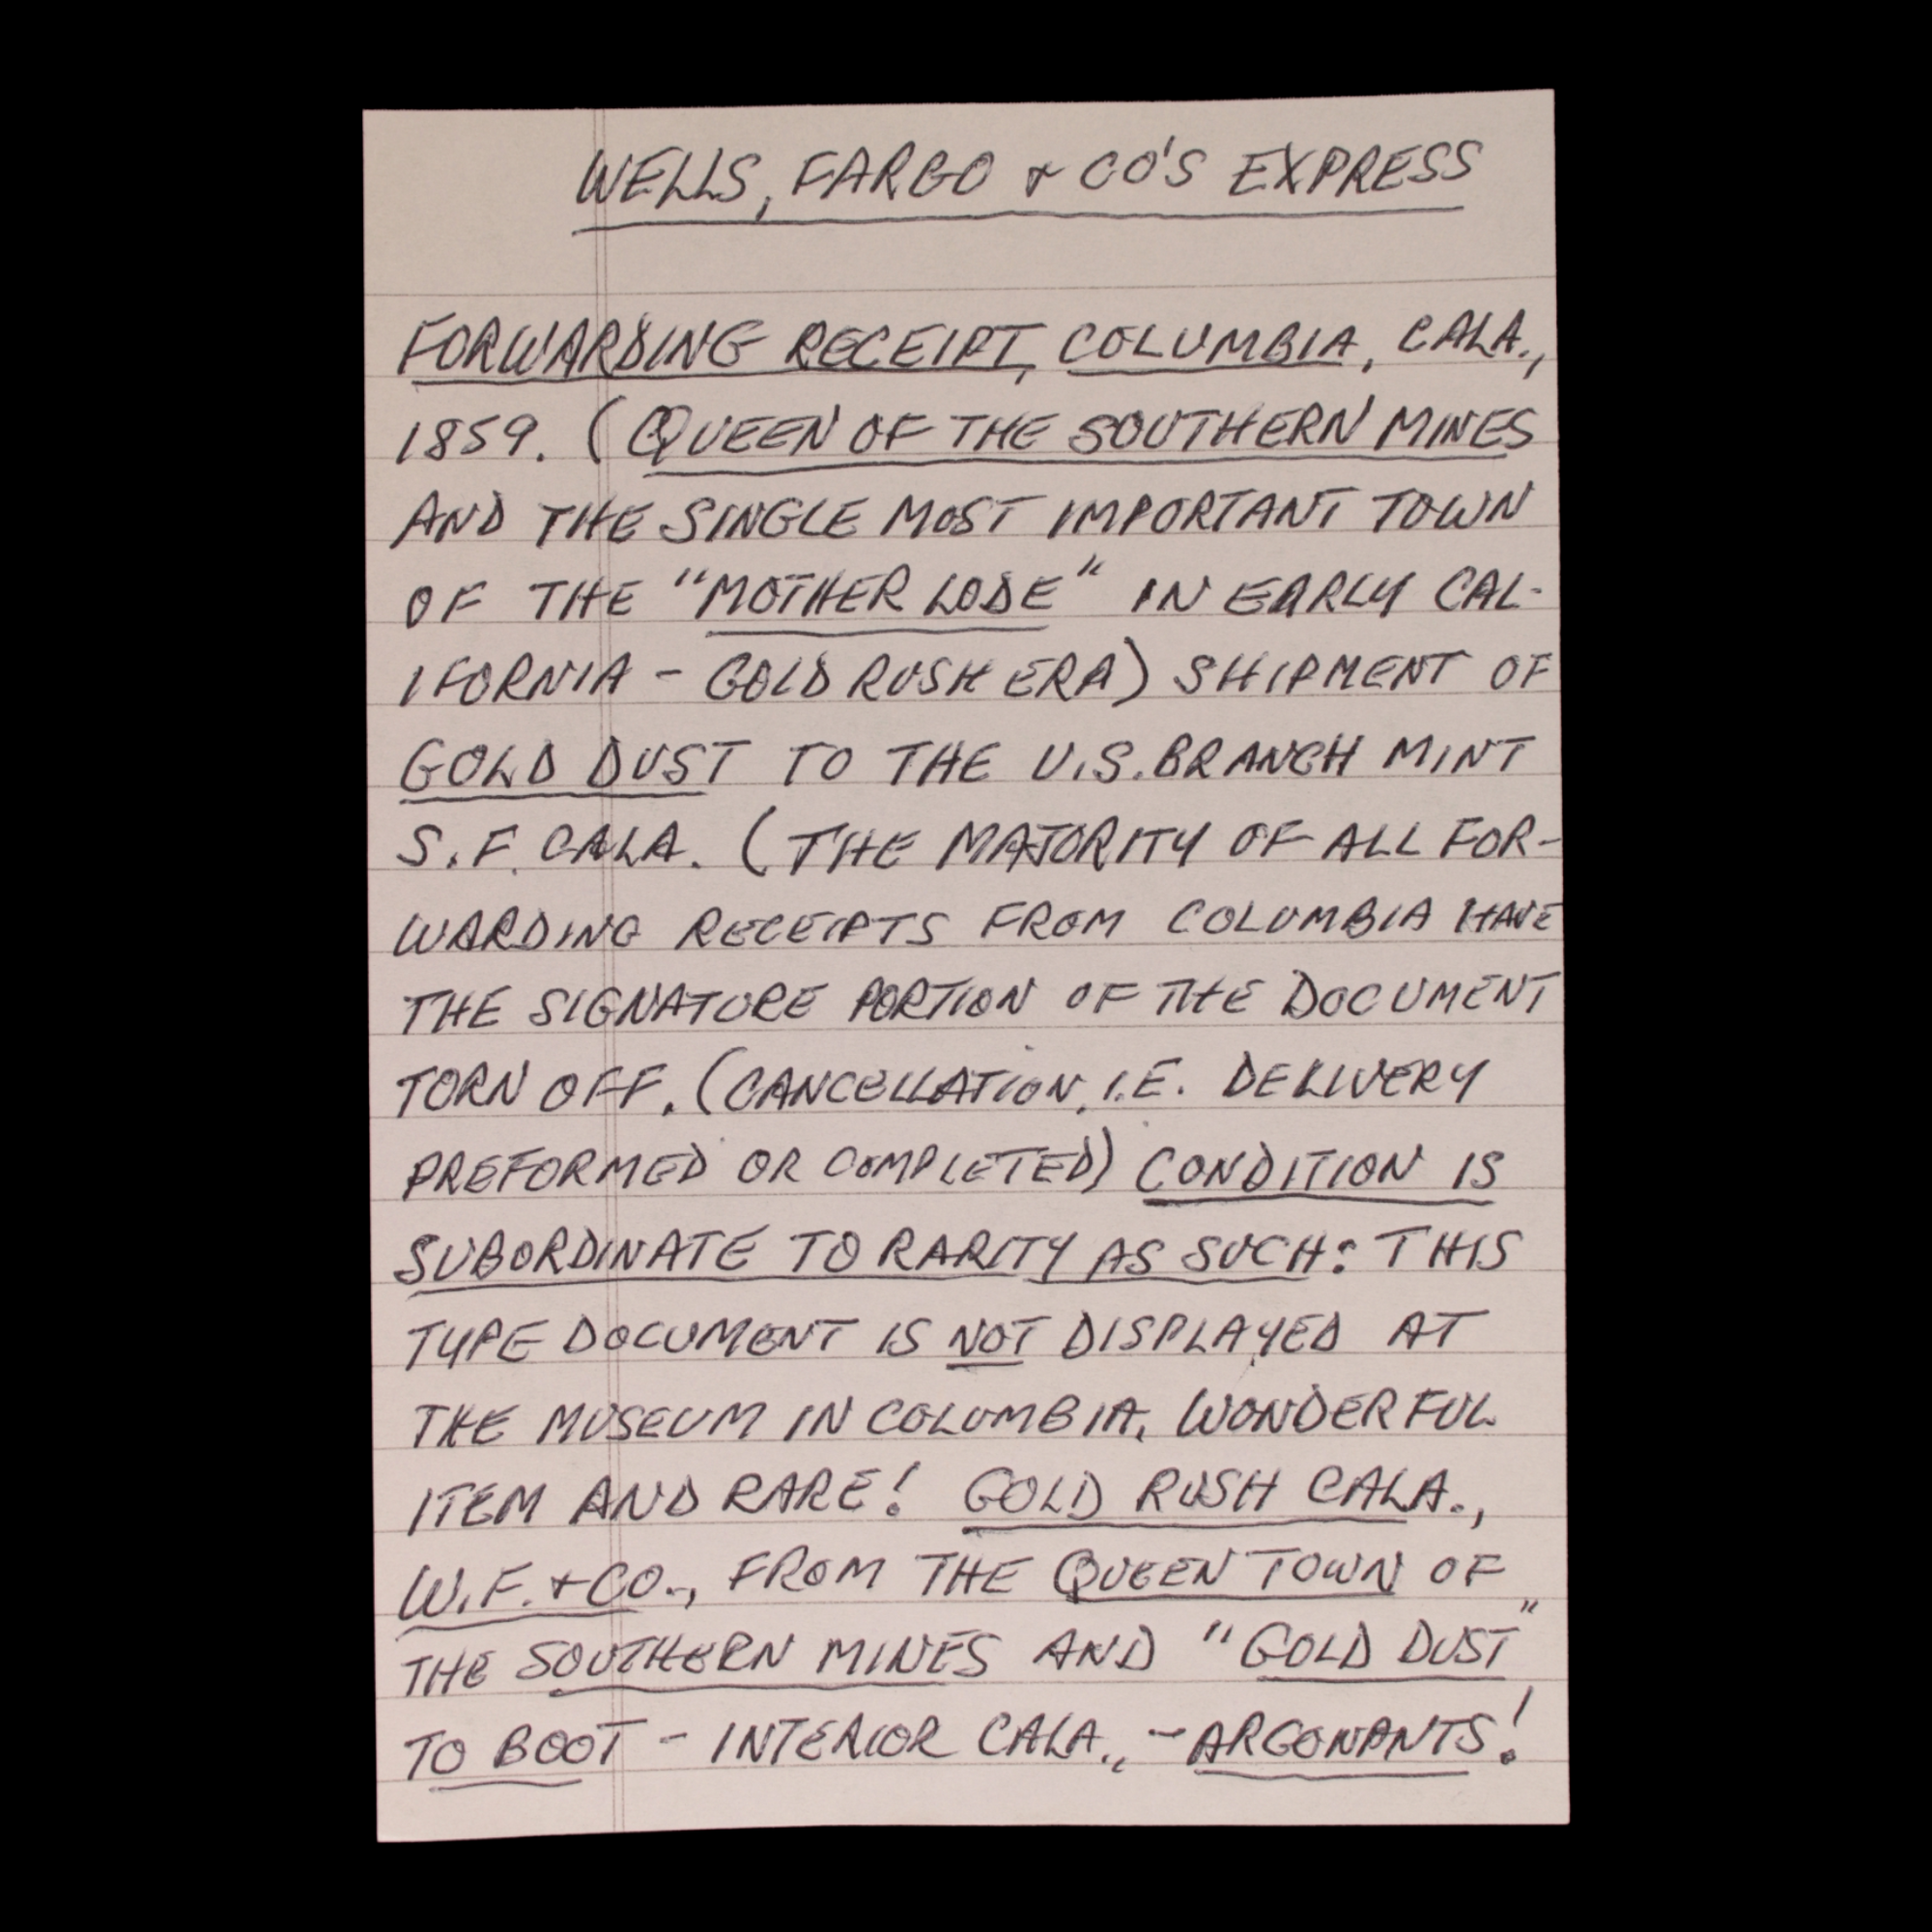 WELLS, FARGO & CO'S EXPRESS
FORWARDING RECEIPT, COLUMBIA, CALA.,
1859. (QUEEN OF THE SOUTHERN MINES
AND THE SINGLE MOST IMPORTANT TOWN
OF THE "MOTHER LODE" IN EARLY CAL-
IFORNIA - GOLD RUSH ERA) SHIPMENT OF
GOLD DUST TO THE U.S. BRANCH MINT
S.F. CALA. (THE MAJORITY OF ALL FOR-
WARDING RECEIPTS FROM COLUMBIA HAVE
THE SIGNATURE PORTION OF THE DOCUMENT
TORN OFF. (CANCELLATION, I.E. DELIVERY
PREFORMED OR COMPLETED) CONDITION IS
SUBORDINATE TO RARITY AS SUCH: THIS
TYPE DOCUMENT IS NOT DISPLAYED AT
THE MUSEUM IN COLUMBIA. WONDERFUL
ITEM AND RARE! GOLD RUSH CALA.,
W.F. & CO., FROM THE QUEEN TOWN OF
THE SOUTHERN MINES AND "GOLD DUST"
TO BOOT - INTERIOR CALA., - ARGONANTS!